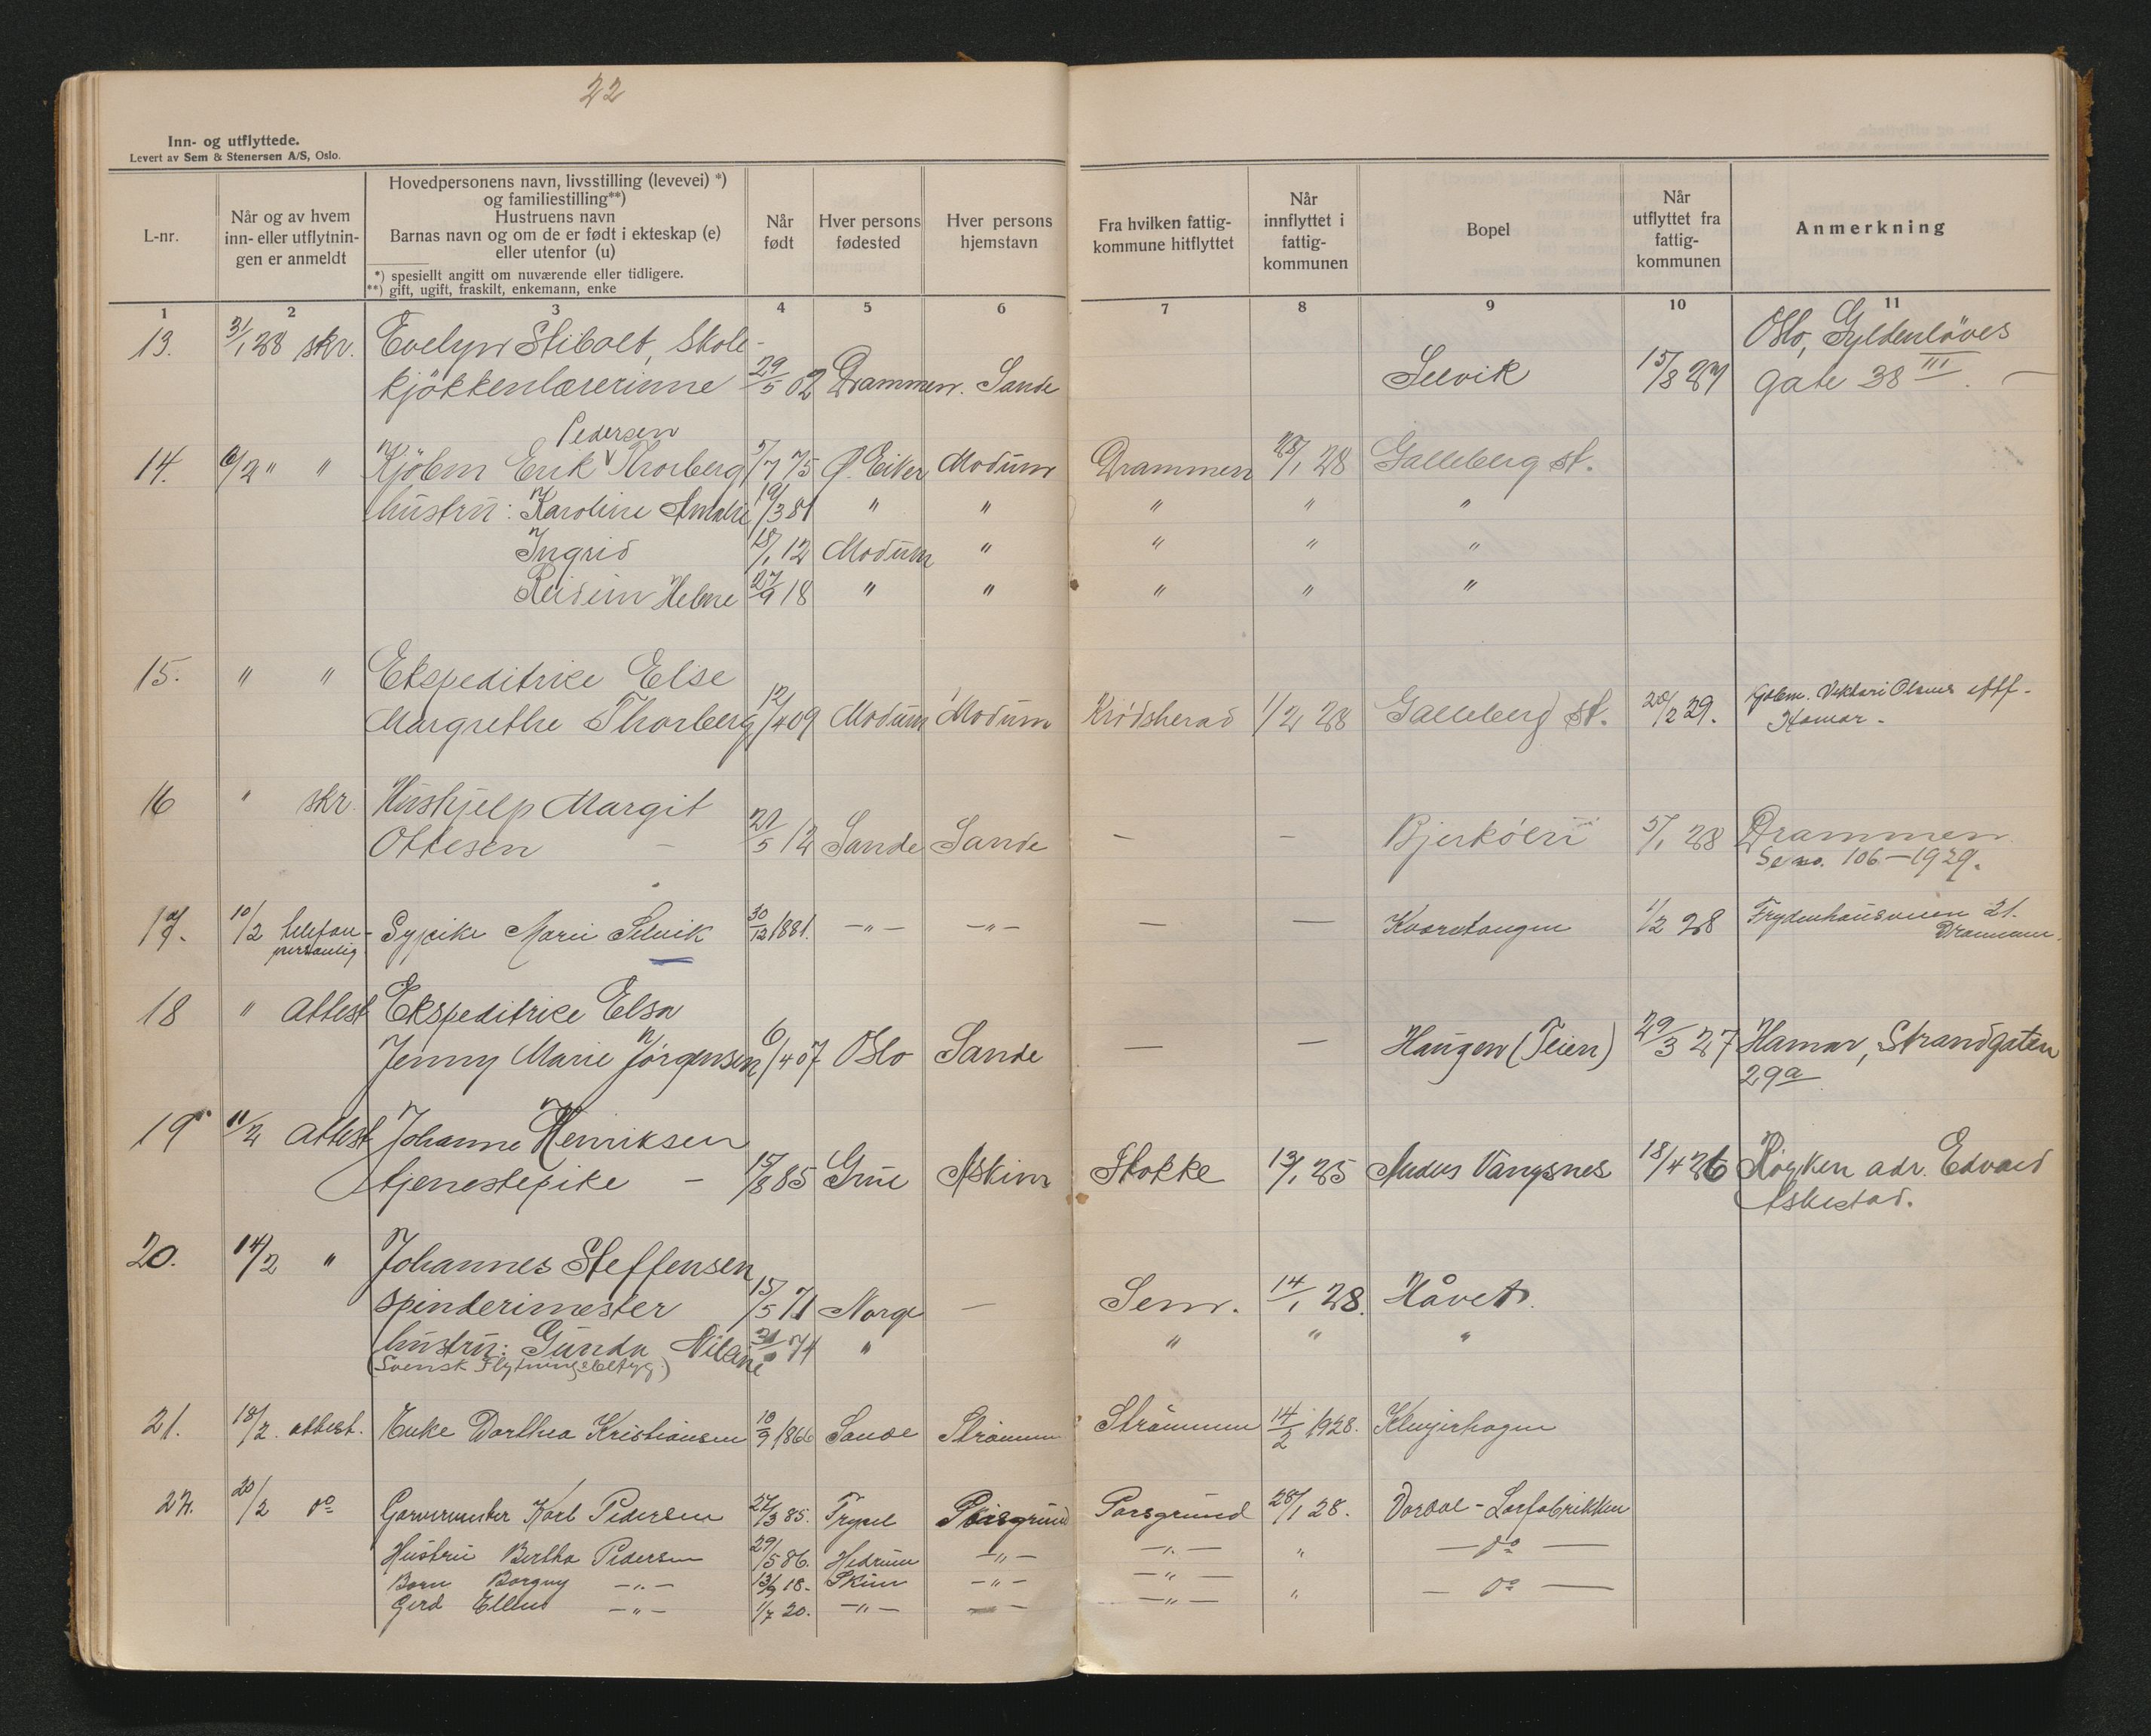 22
Inn- og utflyttede.
Levert av Sem & Stenersen A/S, Oslo.
L-nr.
Når og av hvem
inn- eller utflytnin-
gen er anmeldt
Hovedpersonens navn, livsstilling (levevei) *)
og familiestilling**)
Hustruens navn
Barnas navn og om de er født i ekteskap (e)
eller utenfor (u)
*) spesielt angitt om nuværende eller tidligere.
**) gift, ugift, fraskilt, enkemann, enke
Når
født
Hver persons
fødested
Hver persons
hjemstavn
Fra hvilken fattig-
kommune hitflyttet
Når
innflyttet i
fattig-
kommunen
Bopel
Når
utflyttet fra
fattig-
kommunen
Anmerkning
1 2 3 4 5 6 7 8 9 10 11
13. 31/1 28 skr. Evelyn Stibolt, Skole- Oslo, Gyldenløves
kjökkenlærerinne 29/5 02 Drammen. Sande Selvik 15/8 27 gate 38 III. —
Pedersen
14. 6/2 " " Kjöbm Erik V Thorberg 5/7 75 Ø. Eiker Modum Drammen 28/1 28 Galleberg st.
hustru: Karoline Amalie 19/3 81 " " " " "
Ingrid 18/1 12 Modum " " " "
Reidun Helene 27/9 18 " " " " "
15. " " Ekspeditrice Else
Margrethe Thorberg 12/4 09 Modum Modum Krödsherad 1/2 28 Galleberg st. 20/2 29. Kjöbm. Viktori Olsens eftf.
Hamar -
16 " skr. Hushjelp Margit
Ottesen — 21/5 12 Sande Sande — — Bjerköen 5/1 28 Drammen
Se no. 106 — 1929.
17. 10/2 telefon- Sypike Marie Selvik 30/12 1881. —"— —"— — — Kvaretangen 1/2 28 Frydenhausveien 21.
personlig. Drammen.
18 " attest Ekspeditrice Elsa
Jenny Marie Jörgensen 6/4 07 Oslo Sande — — Haugen (Teien) 29/3 27 Hamar, Strandgaten
29a
19 11/2 attest Johanne Henriksen
tjenestepike — 15/8 85 Grue Askim Stokke 13/1 25 Anders Vangsnes 18/4 26 Röyken adr. Edvard
Askestad.
20. 14/2 " Johannes Steffensen
spinderimester 15/5 71 Norge — Sem. 14/1 28. Håvet.
hustru: Gunda Niline 74 " " " "
(Svensk Flytningsbetyg)
21. 18/2. attest. Enke Dorthea Kristiansen 10/9 1866 Sande Strömmen Strömmen 14/2 1928. Klevjerhagen
22. 20/2 do Garvermester Karl Pedersen 27/3 85. Trysil Porsgrund Porsgrund 28/1 28. Dordal - Lærfabrikken
Hustru Bertha Pedersen 29/5 86. Hedrum —"— —"— " — do —
Barn Borgny —"— 13/9 18. Skien —"— —"— " — do —
Gerd Ellen —"— 1/7 20. —"— — —"—